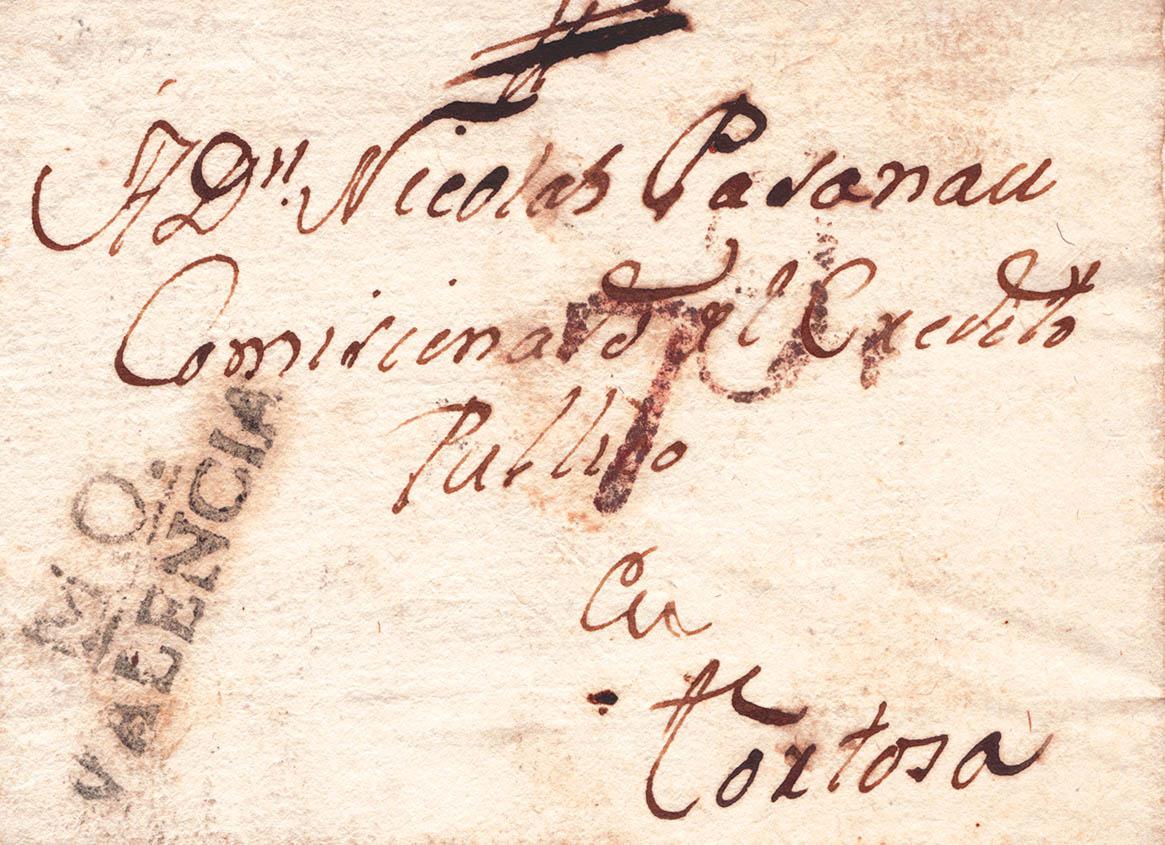 A Dn. Nicolas Pasanau
Comisionado del Credito
Publico
en
Tortosa
M O.
VALENCIA